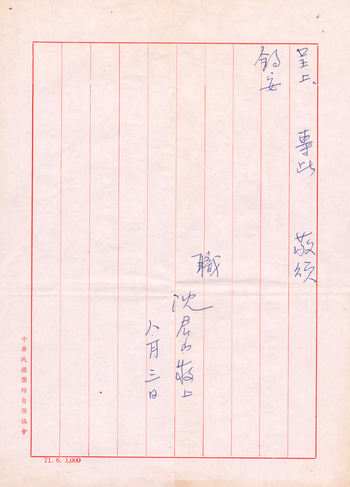 呈上。 專此 敬頌
鈞安
職
沈君山敬上
八月三日
中華民國團結自強協會
71. 6. 1,000